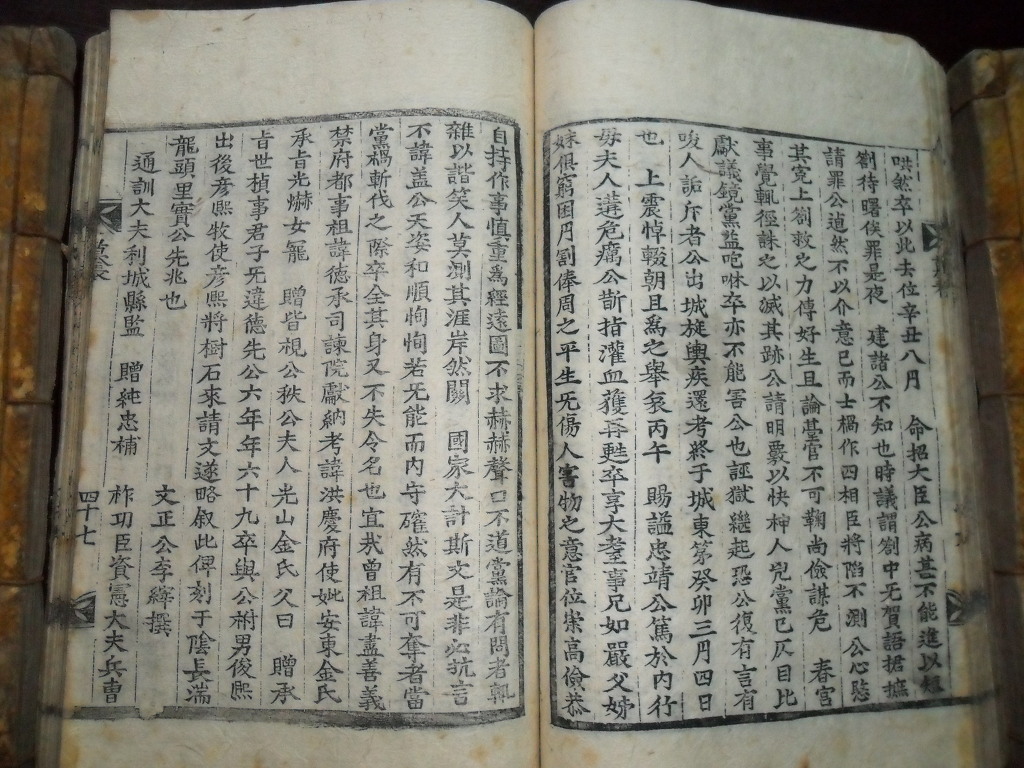 哄然卒以此去位辛丑八月 命招大臣公病甚不能進以短
劄待曙俟罪是夜 建諸公不知也時議謂劄中无賀語捃摭
請罪公逌然不以介意已而士禍作四相臣將陷不測公心慇
其寃上劄救之力傳好生且論臺官不可鞠尚儉謀危 春宮
事覺輒徑誅之以滅其跡公請明覈以快神人兇黨已仄目比
獻議鏡黨益咆咻卒亦不能害公也誣獄繼起恐公復有言有
唆人詬斥者公出城旋輿疾還考終于城東第癸卯三月四日
也 上震悼輟朝且爲之擧哀丙午 賜謚忠靖公篤於內行
毋夫人遘危癘公斮指灌血獲再甦卒享大耋事兄如嚴父姊
妹俱窮困月割俸周之平生无傷人害物之意官位崇高儉恭
自持作事愼重爲經遠圖不求赫赫聲口不道黨論有問者輒
雜以諧笑人莫測其涯岸然關 國家大計斯文是非必抗言
不諱盖公天姿和順恂恂若无能而內守確然有不可奪者當
黨禍斬伐之際卒全其身又不失令名也宜哉曾祖諱藎善義
禁府都事祖諱德承司諫院獻納考諱洪慶府使妣安東金氏
承旨光爀女寵 贈皆視公秩公夫人光山金氏父曰 贈承
旨世楨事君子无違德先公六年年六十九卒與公祔男俊熙
出後彦熙牧使彦熙將樹石來請文遂略叙此俾刻于陰長湍
龍頭里實公先兆也
文正公李縡撰
通訓大夫利城縣監 贈純忠補 祚功臣資憲大夫兵曹
四十七